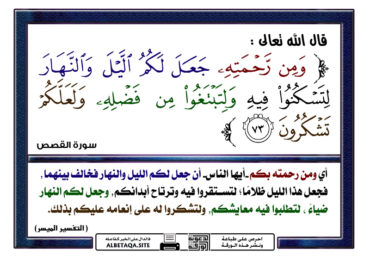 قال الله تعالى :
﴿ وَمِن رَّحْمَتِهِۦ جَعَلَ لَكُمُ ٱلَّيْلَ وَٱلنَّهَارَ
لِتَسْكُنُوا۟ فِيهِ وَلِتَبْتَغُوا۟ مِن فَضْلِهِۦ وَلَعَلَّكُمْ
تَشْكُرُونَ ٧٣ ﴾
سورة القصص
أي ومن رحمته بكم ـ أيها الناس ـ أن جعل لكم الليل والنهار فخالف بينهما،
فجعل هذا الليل ظلاما؛ لتستقروا فيه وترتاح أبدانكم، وجعل لكم النهار
ضياءً ، لتطلبوا فيه معايشكم، ولتشكروا له على إنعامه عليكم بذلك.
( التفسير الميسر )
فالدال على الخير كفاعله
ALBETAQA.SITE
احرص على طباعة
ونشر هذه الورقة